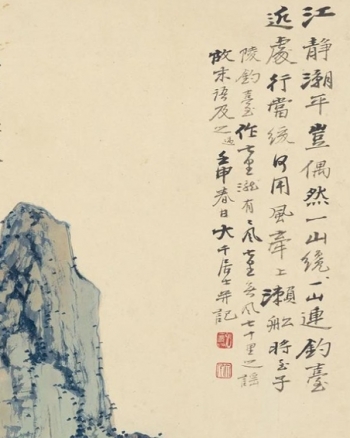 江静潮平豈偶然一山繞一山連釣臺
近處行當緩何用風牽上瀨船將至子
陵釣臺作七里瀧有風七里无風七十里之謠
故末語及之壬申春日大千居士并記